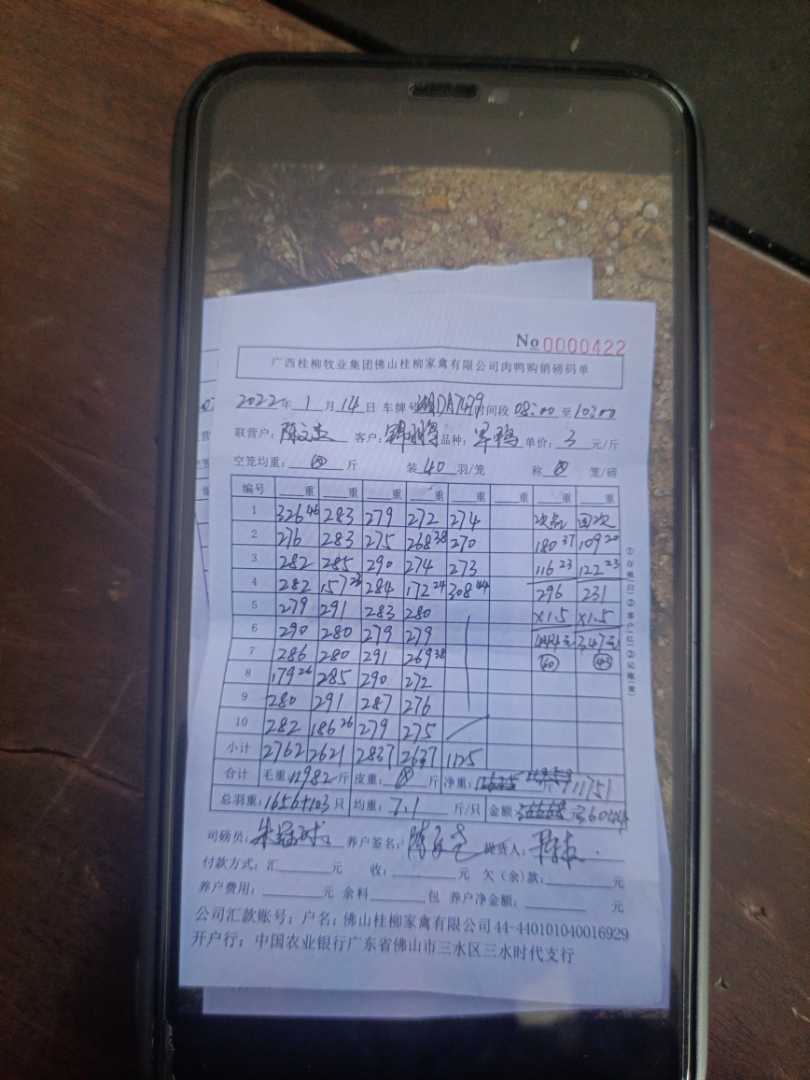 No 0000422
广西桂柳牧业集团佛山桂柳家禽有限公司肉鸭购销磅码单
2022年 1月 14日 车牌号 DA7479 时间段 08:00 至 10:00
联营户: 客户: 品种: 单价: 3 元/斤
空笼均重: 斤 装 40 羽/笼 称 笼/磅
编号 重 重 重 重 重 重 重 重
1 326 46 283 279 272 274 次品 回次
2 276 283 275 268 38 270 180 37 109 20
3 282 285 290 274 273 116 23 122 23
4 282 157 23 284 172 24 308 44 296 231
5 279 291 283 280 x1.5 x1.5
6 290 280 279 279 444元 347元
7 286 280 291 269 38 60 43
8 179 26 285 290 272
9 280 291 287 276
10 282 186 26 279 275
小计 2762 2621 2837 2637 1125
合计 毛重: 11982斤 皮重: 斤 净重: 11751
总羽重: 1656+103 只 均重: 7.1 斤/只 金额: 36044
司磅员: 养户签名: 提货人:
付款方式: 汇 元 收: 元 欠(余)款: 元
养户费用: 元 余料 包 养户净金额: 元
公司汇款账号: 户名: 佛山桂柳家禽有限公司 44-440101040016929
开户行: 中国农业银行广东省佛山市三水区三水时代支行